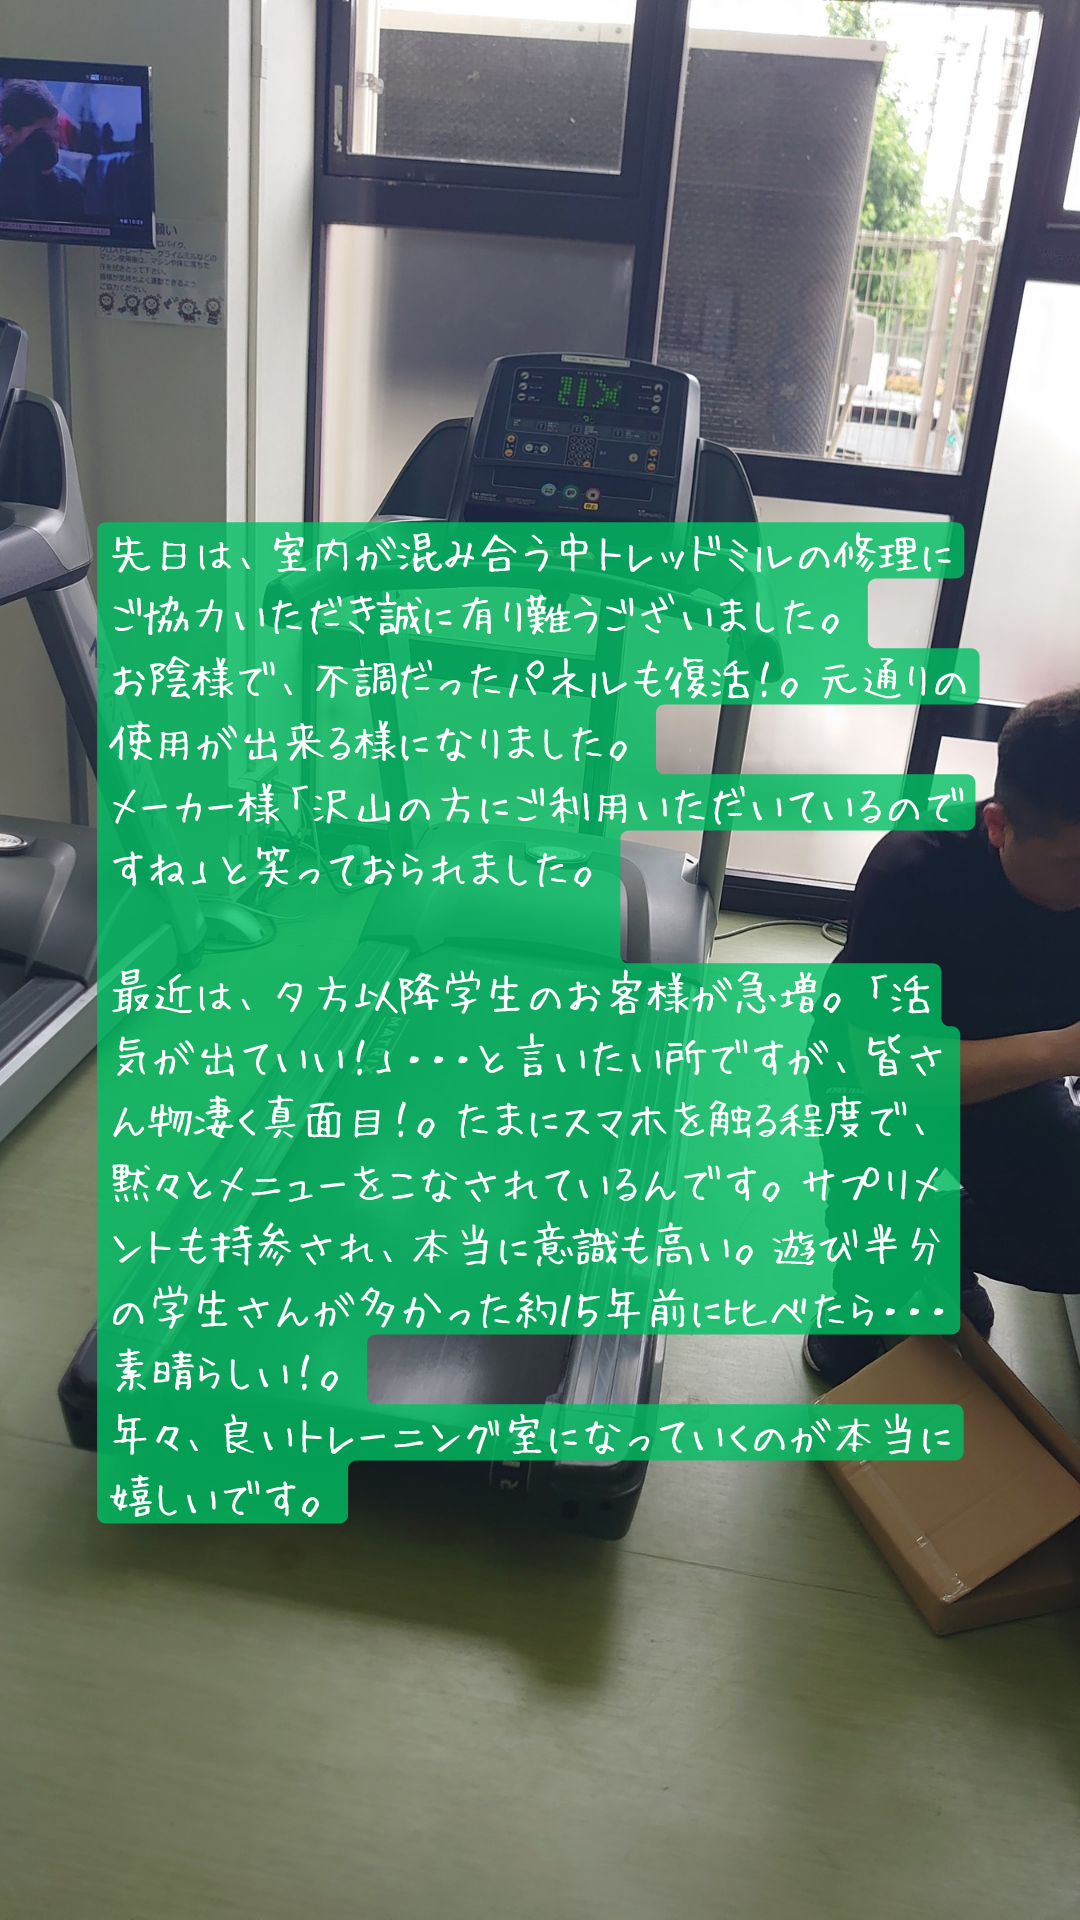 願い
マシン使用後は、マシンや床に落ちた
汗を拭きとって下さい。
皆様が気持ちよく運動できるよう
ご協力ください。
MATRIX
先日は、室内が混み合う中トレッドミルの修理に
ご協力いただき誠に有り難うございました。
お陰様で、不調だったパネルも復活！。元通りの
使用が出来る様になりました。
メーカー様「沢山の方にご利用いただいているので
すね」と笑っておられました。
最近は、夕方以降学生のお客様が急増。「活
気が出ていい！」・・・と言いたい所ですが、皆さ
ん物凄く真面目！。たまにスマホを触る程度で、
黙々とメニューをこなされているんです。サプリメ
ントも持参され、本当に意識も高い。遊び半分
の学生さんが多かった約15年前に比べたら・・・
素晴らしい！。
年々、良いトレーニング室になっていくのが本当に
嬉しいです。
MATRIX